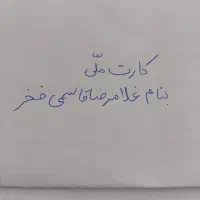 کارت ملّی
بنام غلامرضا قاسمی فخر